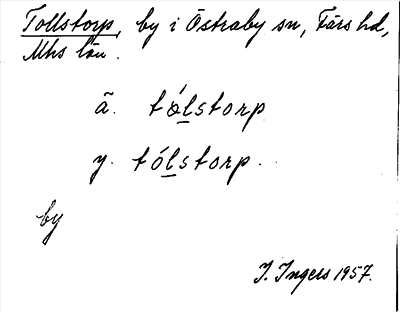 Tollstorp, by i Östraby sn, Färs hd,
Mhs län.
ä. tólstorp
y. tólstorp.
by
I. Ingers 1957.